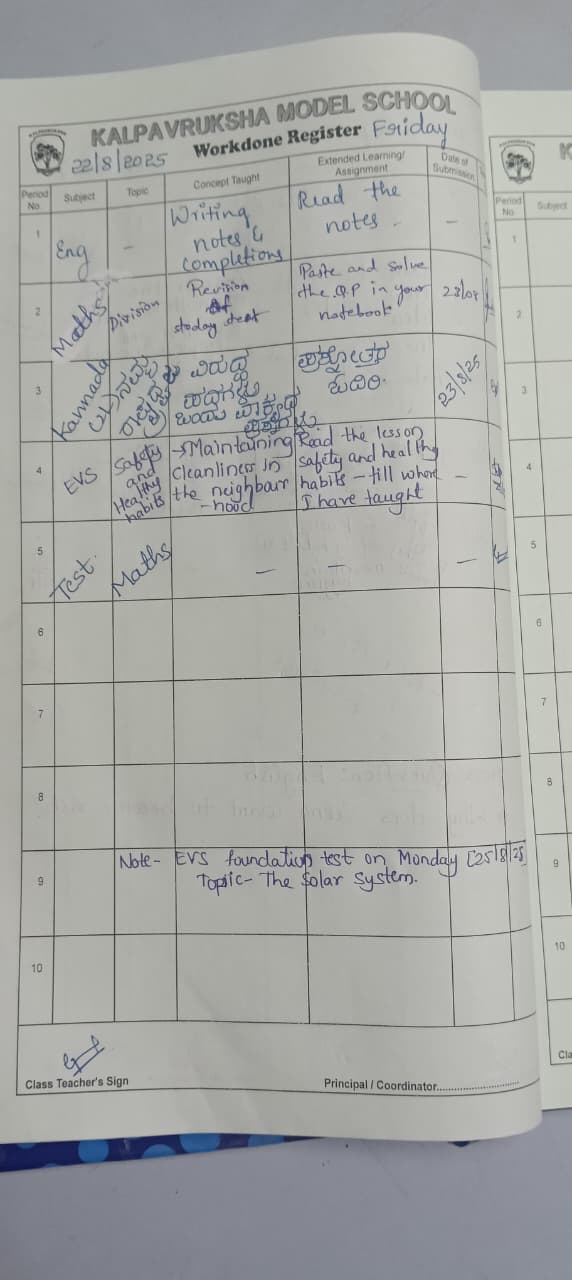 KALPAVRUKSHA MODEL SCHOOL
22/8/2025 Workdone Register Friday
Period No Subject Topic Concept Taught Extended Learning/ Assignment Date of Submission
1 Eng - Writing notes & completions Read the notes. -
2 Maths Division Revision of today test Paste and solve the Q.P in your notebook 23/08
3 Kannada ವಿರುದ್ಧ ಪದಗಳು ಪ್ರಶ್ನೋತ್ತರ ಓದಿರಿ. 23/8/25
4 EVS Safety and Healthy habits → Maintaining Cleanliness in the neighbour -hood Read the lesson safety and healthy habits - till where I have taught -
5 Test. Maths - - -
6
7
8
9 Note- EVS foundation test on Monday [25/8/25]
Topic- The Solar System.
10
Class Teacher's Sign Principal / Coordinator
Period No Subject
1
2
3
4
5
6
7
8
9
10
Cla